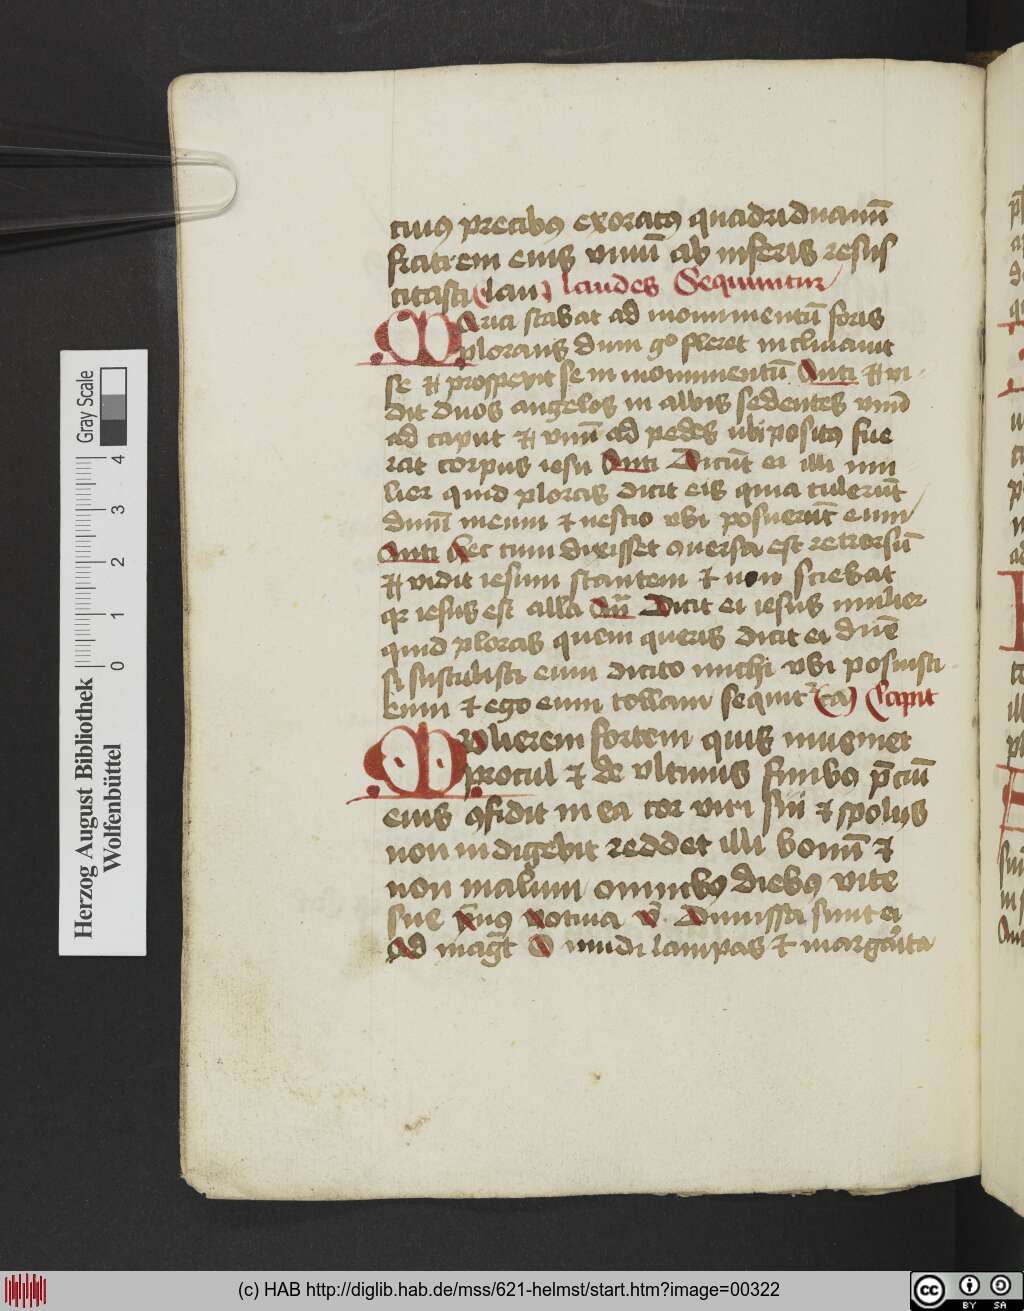 cuius precibus exoratus quadriduanū
fratrem eius viuū ab inferis resus
citasti lau laudes Sequuntur
Maria stabat ad monumentū foris
plorans dum gͦ fleret inclinauit
se ⁊ prospexit se in monumentū Anti ⁊ vi
dit duos angelos in albis sedentes vnū
ad caput ⁊ vnū ad pedes ubi positus fue
rat corpus iesu Anti Dicūt ei illi mu
lier quid ploras dicit eis quia tulerūt
dn̄m meum ⁊ nescio vbi posuerūt eum
Anti Hec cum dixisset ꝯuersa est retrorsū
⁊ vidit iesum stantem ⁊ non sciebat
qꝛ iesus est alla An̄ Dicit ei iesus mulier
quid ploras quem queris dicit ei dn̄e
si sustulisti eum dicito michi vbi posuisti
eum ⁊ ego eum tollam sequit᷑ ca Capit
Mulierem fortem quis inueniet
procul ⁊ de vltimis finibus p̄ciū
eius ꝯfidit in ea cor viri sui ⁊ spolijs
non indigebit reddet illi bonū ⁊
non malum omnibus diebus vite
sue ymꝰ votiua v̄ Dimissa sunt ei
Ad mag̅t O mudi lampas ⁊ margarita
Herzog August Bibliothek
Wolfenbüttel
0 1 2 3 4
Gray Scale
(c) HAB http://diglib.hab.de/mss/621-helmst/start.htm?image=00322
cc BY SA